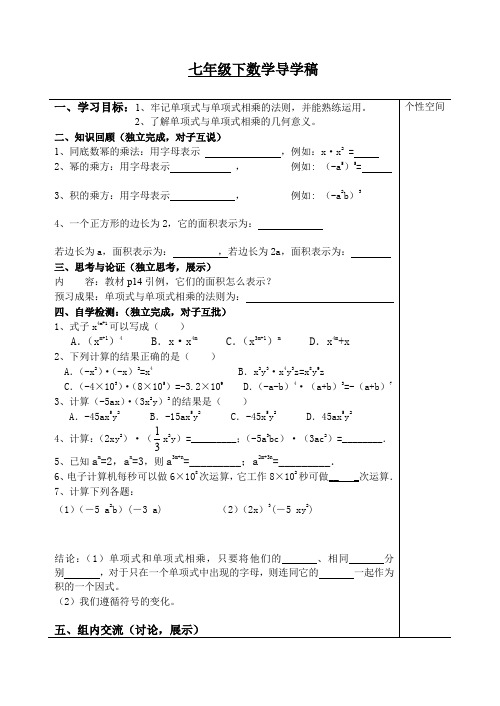 七年级下数学导学稿
一、学习目标：1、牢记单项式与单项式相乘的法则，并能熟练运用。
2、了解单项式与单项式相乘的几何意义。
个性空间
二、知识回顾（独立完成，对子互说）
1、同底数幂的乘法：用字母表示 ，例如：x·x² =
2、幂的乘方：用字母表示 ， 例如: （-a⁵）⁵=
3、积的乘方：用字母表示 ， 例如: （-a²b）³
4、一个正方形的边长为2，它的面积表示为：
若边长为a，面积表示为： ，若边长为2a，面积表示为：
三、思考与论证（独立思考，展示）
内 容：教材p14引例，它们的面积怎么表示？
预习成果：单项式与单项式相乘的法则为：
四、自学检测：（独立完成，对子互批）
1、式子x⁴ᵐ⁺¹可以写成（ ）
A．（xᵐ⁺¹）⁴ B．x·x⁴ᵐ C．（x³ᵐ⁺¹）ᵐ D．x⁴ᵐ+x
2、下列计算的结果正确的是（ ）
A．（-x²）·（-x）²=x⁴ B．x²y³·x⁴y³z=x⁸y⁹z
C．（-4×10³）·（8×10⁵）=-3.2×10⁹ D．（-a-b）⁴·（a+b）³=-（a+b）⁷
3、计算（-5ax）·（3x²y）²的结果是（ ）
A．-45ax⁵y² B．-15ax⁵y² C．-45x⁵y² D．45ax⁵y²
4、计算：（2xy²）·（1/3x²y）=_________；（-5a³bc）·（3ac²）=________．
5、已知aᵐ=2，aⁿ=3，则a³ᵐ⁺ⁿ=_________；a²ᵐ⁺³ⁿ=_________．
6、电子计算机每秒可以做6×10⁸次运算，它工作8×10²秒可做__ _次运算．
7、计算下列各题：
（1）（－5 a²b）（-3 a） （2）（2x）³（-5 xy²）
结论：（1）单项式和单项式相乘，只要将他们的 、相同 分
别 ，对于只在一个单项式中出现的字母，则连同它的 一起作为
积的一个因式。
（2）我们遵循符号的变化。
五、组内交流（讨论，展示）